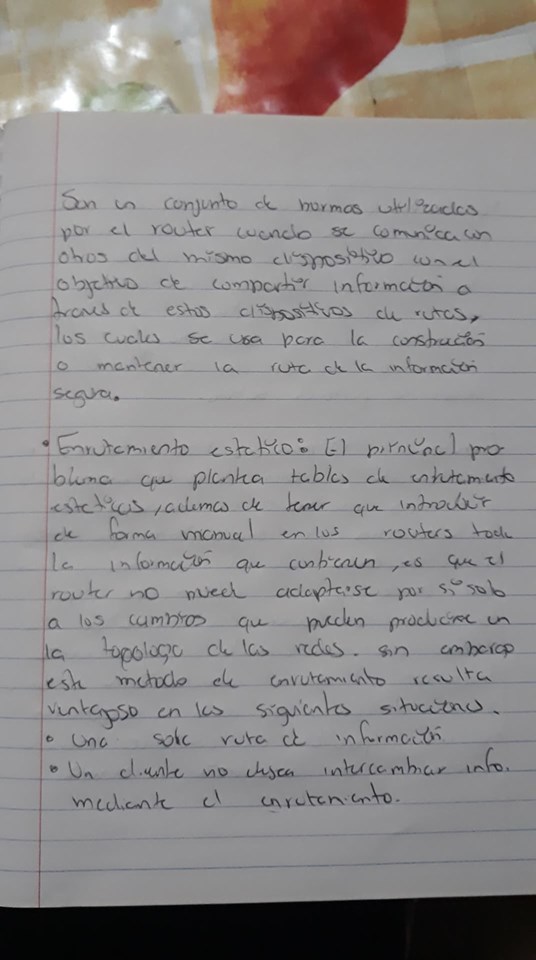 Son un conjunto de normas utilizadas
por el router cuando se comunica con
otros del mismo dispositivo con el
objetivo de compartir información a
traves de estos dispositivos de rutas,
los cuales se usa para la construcción
o mantener la ruta de la información
segura.
• Enrutamiento estatico: El principal pro
blema que plantea tablas de enrutamiento
estaticas, ademas de tener que introducir
de forma manual en los routers toda
la información que contienen, es que el
router no puede adaptarse por si solo
a los cambios que pueden producirse en
la topologa de las redes. sin embargo
este metodo de enrutamiento resulta
ventajoso en las siguientes situaciones.
• Una sola ruta de información.
• Un cliente no desea intercambiar info.
mediante el enrutamiento.